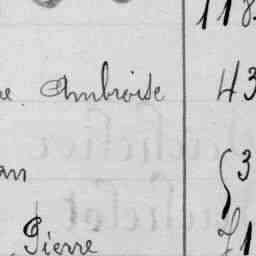 118
e Ambroise 43
an 53
Pierre 71